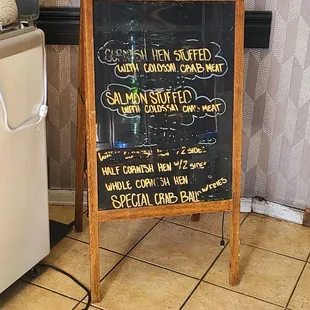 CORNISH HEN STUFFED
WITH COLOSSAL CRAB MEAT
SALMON STUFFED
WITH COLOSSAL CRAB MEAT
W/ 2 SIDES
HALF CORNISH HEN W/ 2 SIDES
WHOLE CORNISH HEN
SPECIAL CRAB BALL W/FRIES